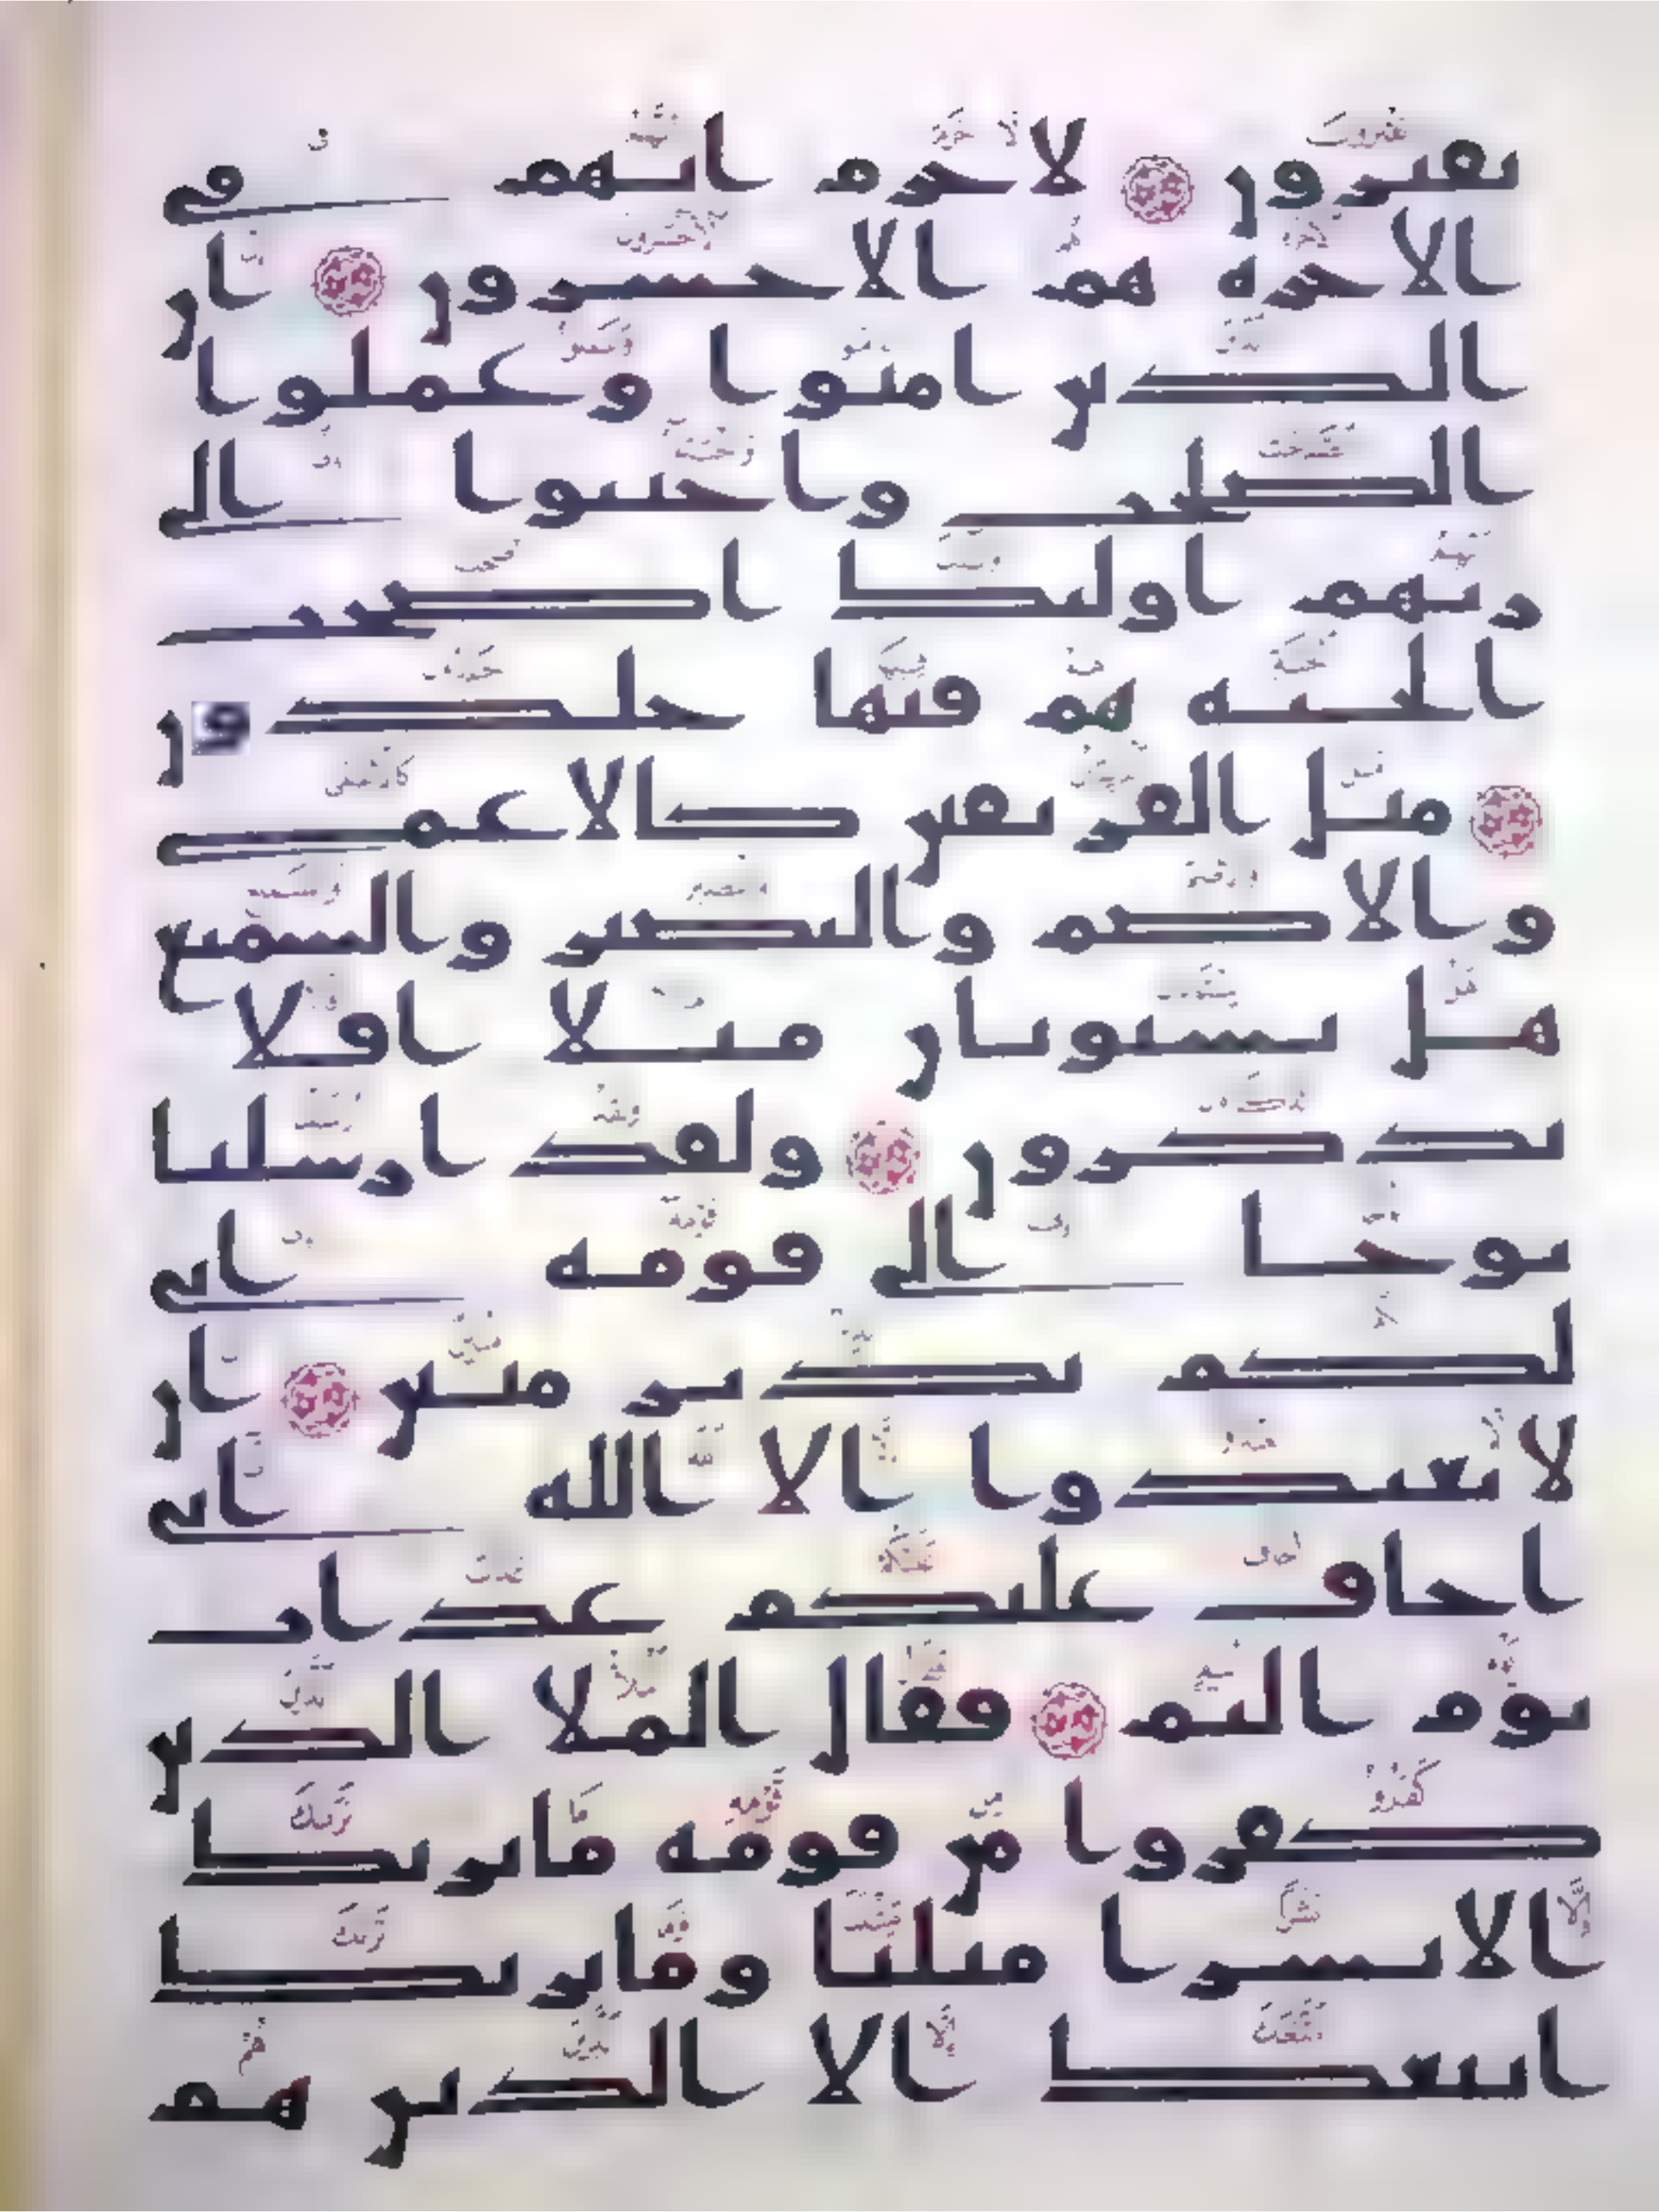 يفترون لا جرم انهم في
الاخرة هم الاخسرون ان
الذين امنوا وعملوا
الصلحت واخبتوا الى
ربهم اولئك اصحب
الجنة هم فيها خلدون
مثل الفريقين كالاعمى
والاصم والبصير والسميع
هل يستويان مثلا افلا
تذكرون ولقد ارسلنا
نوحا الى قومه انى
لكم نذير مبين ان
لا تعبدوا الا الله انى
اخاف عليكم عذاب
يوم اليم فقال الملا الذين
كفروا من قومه ما نريك
الا بشرا مثلنا وما نريك
اتبعك الا الذين هم